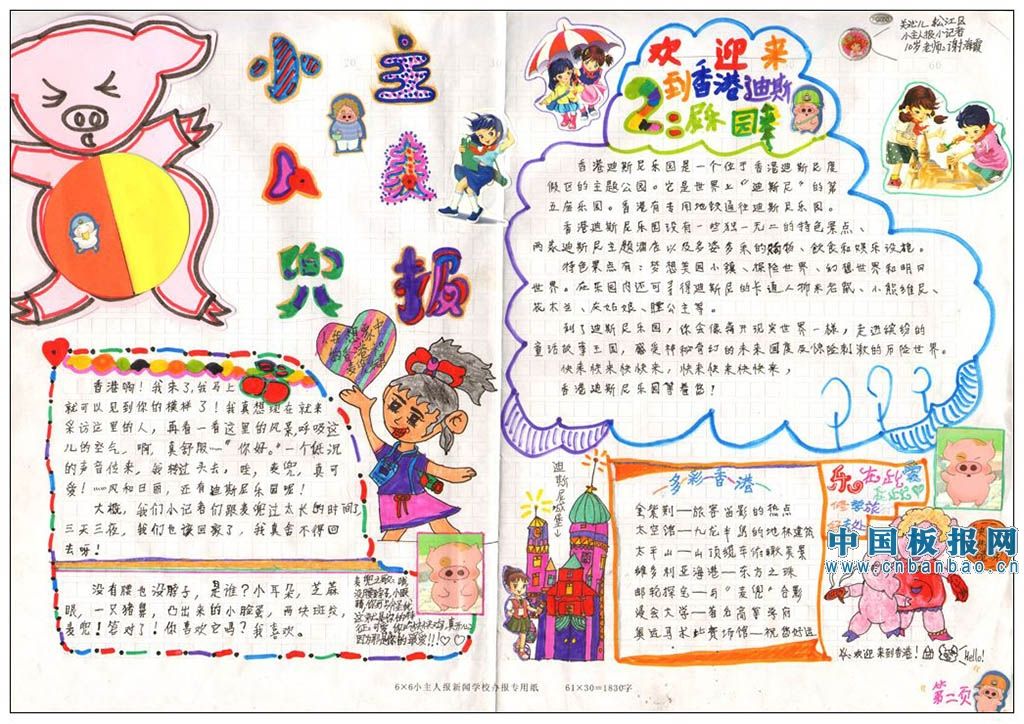 小主
人麦
兜报
欢迎来
到香港迪斯
尼乐园
松江区
小主人报小记者
10岁 老师:谢海霞
香港啊!我来了,我马上
就可以见到你的模样了!我真想现在就来
采访这里的人,再看一看这里的风景,呼吸这
儿的空气。啊,真舒服…“你好。”一个低沉
的声音传来,我转过头去,哇,麦兜,真可
爱!…风和日丽,还有迪斯尼乐园呢!
大概,我们小记者们跟麦兜过太长的时间了,
三天三夜,我们也该回家了,我真舍不得回
去呀!
没有腰也没脖子,是谁?小耳朵,芝麻
眼,一只猪鼻,凸出来的小脸蛋,两块斑纹,
麦兜!答对了!你喜欢它吗?我喜欢。
香港迪斯尼乐园是一个位于香港迪斯尼度
假区的主题公园。它是世界上“迪斯尼”的第
五座乐园。香港有专用地铁通往迪斯尼乐园。
香港迪斯尼乐园设有一些独一无二的特色景点、
两家迪斯尼主题酒店以及多姿多采的购物、饮食和娱乐设施。
特色景点有:梦想美国小镇、探险世界、幻想世界和明日
世界。在乐园内还可寻得迪斯尼的卡通人物米老鼠、小熊维尼、
花木兰、灰姑娘、睡公主等。
到了迪斯尼乐园,你会像离开现实世界一样,走进缤纷的
童话故事王国,感受神秘奇幻的未来国度及惊险刺激的历险世界。
快来快来快快来,快来快来快快来,
香港迪斯尼乐园等着您!
迪斯尼城堡↓
多彩香港
金紫荆—旅客留影的热点
太空馆—九龙半岛的地标建筑
太平山—山顶缆车你瞅美景
维多利亚海港—东方之珠
邮轮探宝—与“麦兜”合影
浸会大学—首名高等学府
奥运马术比赛场馆—祝您好运
乐在此
中国板报网
www.cnbanbao.cn
欢迎来到香港!
Hello!
第二页
6×6小主人报新闻学校办报专用纸 61×30=1830字